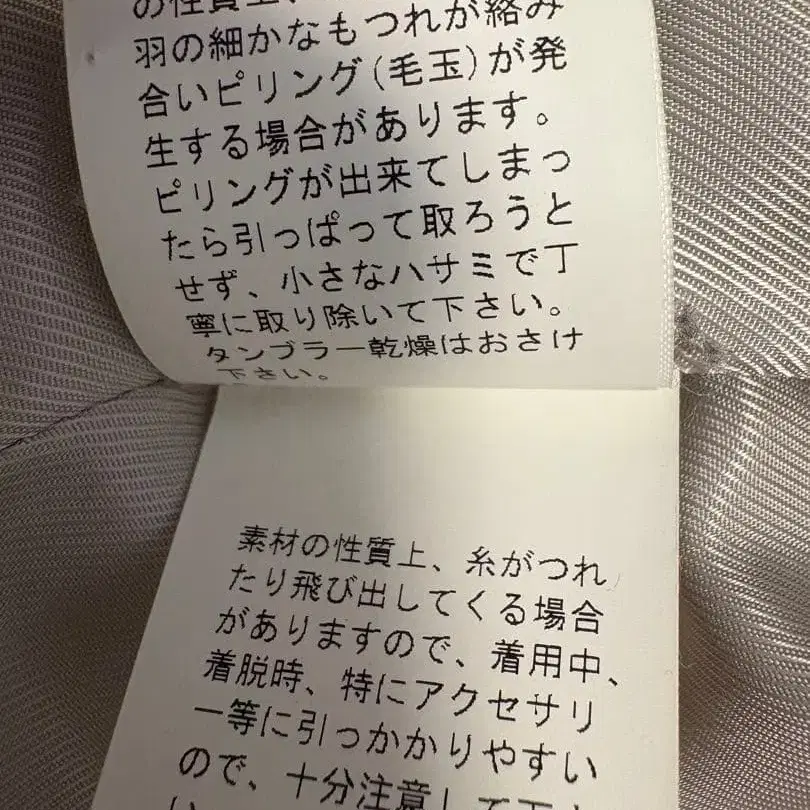 の性質上、
羽の細かなもつれが絡み
合いピリング(毛玉)が発
生する場合があります。
ピリングが出来てしまっ
たら引っぱって取ろうと
せず、小さなハサミで丁
寧に取り除いて下さい。
タンブラー乾燥はおさけ
下さい。
素材の性質上、糸がつれ
たり飛び出してくる場合
がありますので、着用中、
着脱時、特にアクセサリ
ー等に引っかかりやすい
ので、十分注意して下さ
い